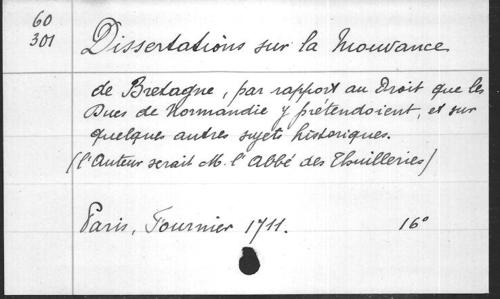 60
301
Dissertations sur la Mouvance
de Bretagne, par rapport au Droit que les
Ducs de Normandie y prétendoient, et sur
quelques autres sujets historiques.
(l'Auteur serait M. l'Abbé des Thuilleries)
Paris, Fournier 1711. 16°